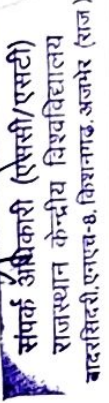 संपर्क अधिकारी (एससी/एसटी)
राजस्थान केन्द्रीय विश्वविद्यालय
बांदरसिंदरी,एनएच-8, किशनगढ़, अजमेर (राज)